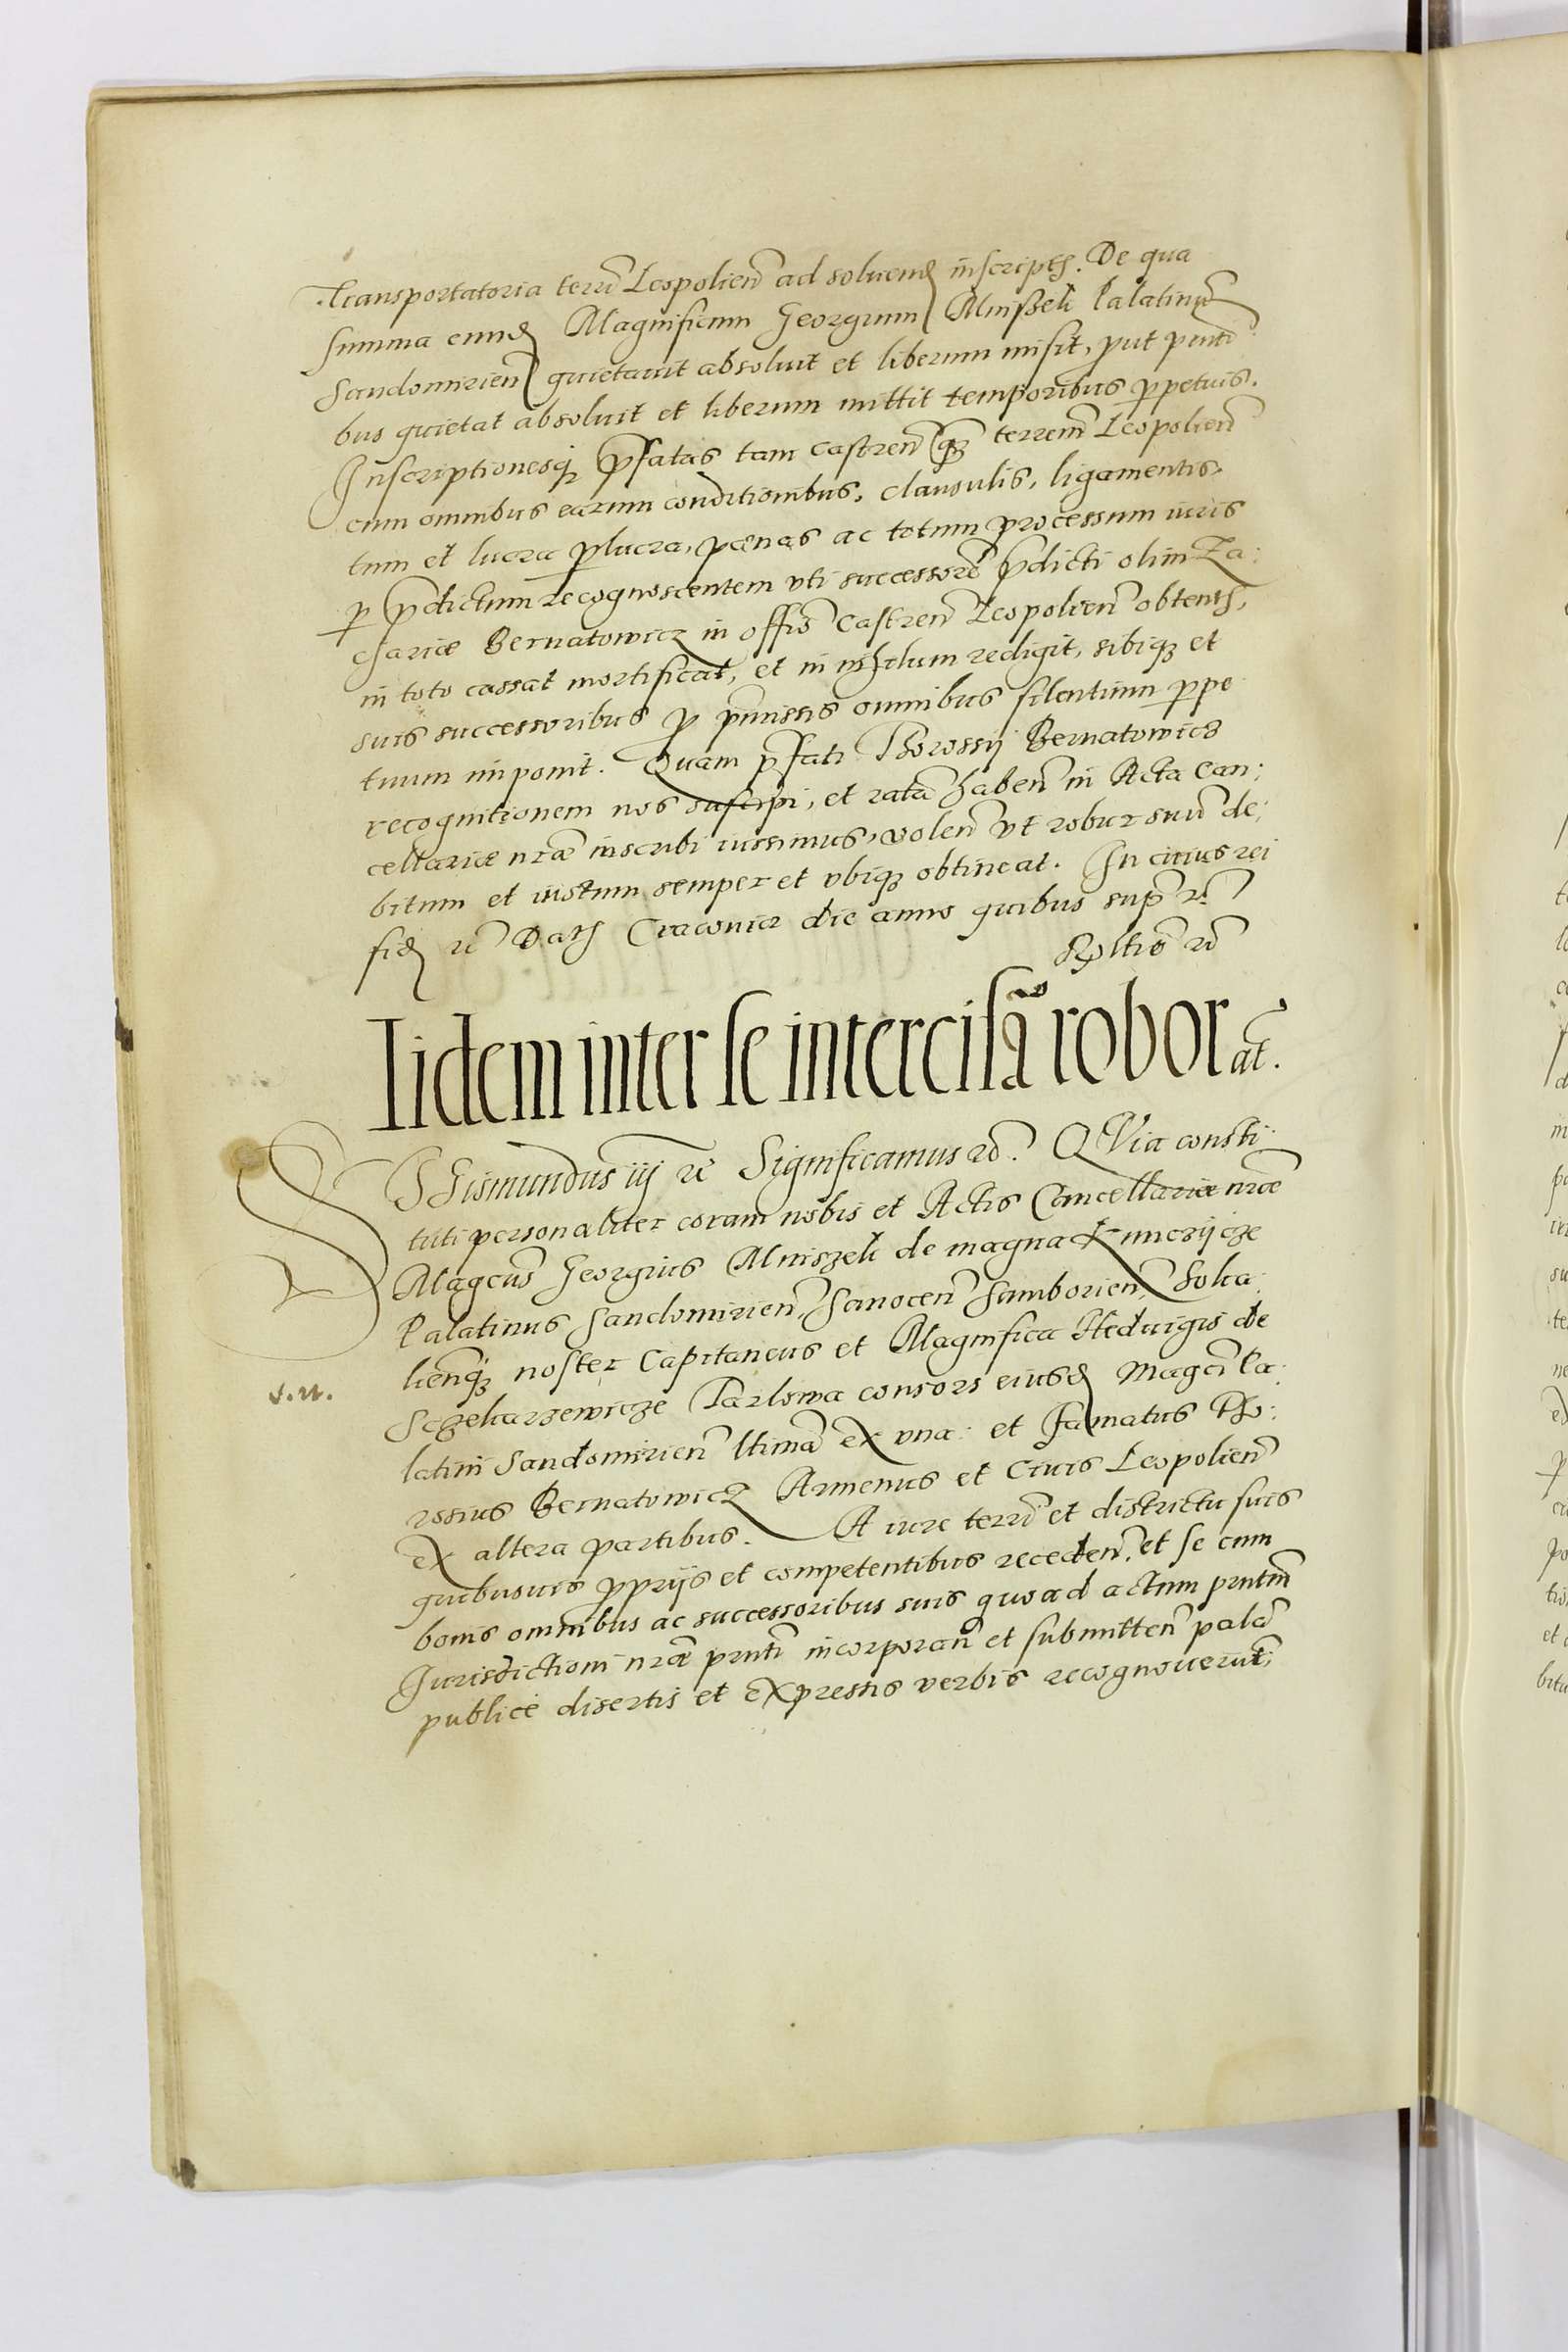 Transportatoria terrẽ Leopolieñ ad soluend inscripts. De qua
summa eund Magnificum Georgium Mnißek Palatinũ
Sandomirieñ quietauit absoluit et liberum misit, put pñti
bus quietat absoluit et liberum mittit temporibus ppetuis.
Inscriptionesq pfatas tam castreñ qz terreñ Leopolieñ
cum omnibus earum conditionibus, clausulis, ligamentis,
tum et lucra plucra, pœnas ac totum processum iuris
p pdictum recognoscentem vti successorẽ pdicti olim Za:
chariæ Bernatowicz in offõ Castreñ Leopolieñ obtents,
in toto cassat mortificat, et in nihilum redigit, sibiqz et
suis successoribus p pmissis omnibus silentium ppe
tuum imponit. Quam pfati Thorossij Bernatowicz
recognitionem nos suscipi, et ratã habeñ in Acta Can:
cellariæ nræ inscribi iussimus, voleñ vt robur suũ de:
bitum et iustum semper et vbiqz obtineat. In cuius rei
fid rc Dats Cracouiæ die anno quibus sup rc
Rltio rc
Iidem inter se intercisã roborãt.
SIgismundus iij rc Significamus rc. QVia consti
tuti personaliter coram nobis et Actis Cancellariæ nræ
Magcus Georgius Mniszek de magna Kunczijcze
Palatinus Sandomirieñ, Sanoceñ Samborieñ, Soka:
lieñqz noster Capitaneus et Magnifica Heduigis de
v. n.
Sczekarzewicze Tarlowa consors eiusd Magci Pa:
latini Sandomirieñ ltimã ex vna: et famatus Tho:
rosius Bernatowicz Armenus et Ciuis Leopolieñ
ex altera partibus. A iure terrẽ et districtu suis
quibusuis pprijs et competentibus recedeñ, et se cum
bonis omnibus ac successoribus suis quo ad actum pntem
Iurisdictioni nræ pnti incorporañ et submitteñ palã
publicè disertis et expressis verbis recognouerũt,